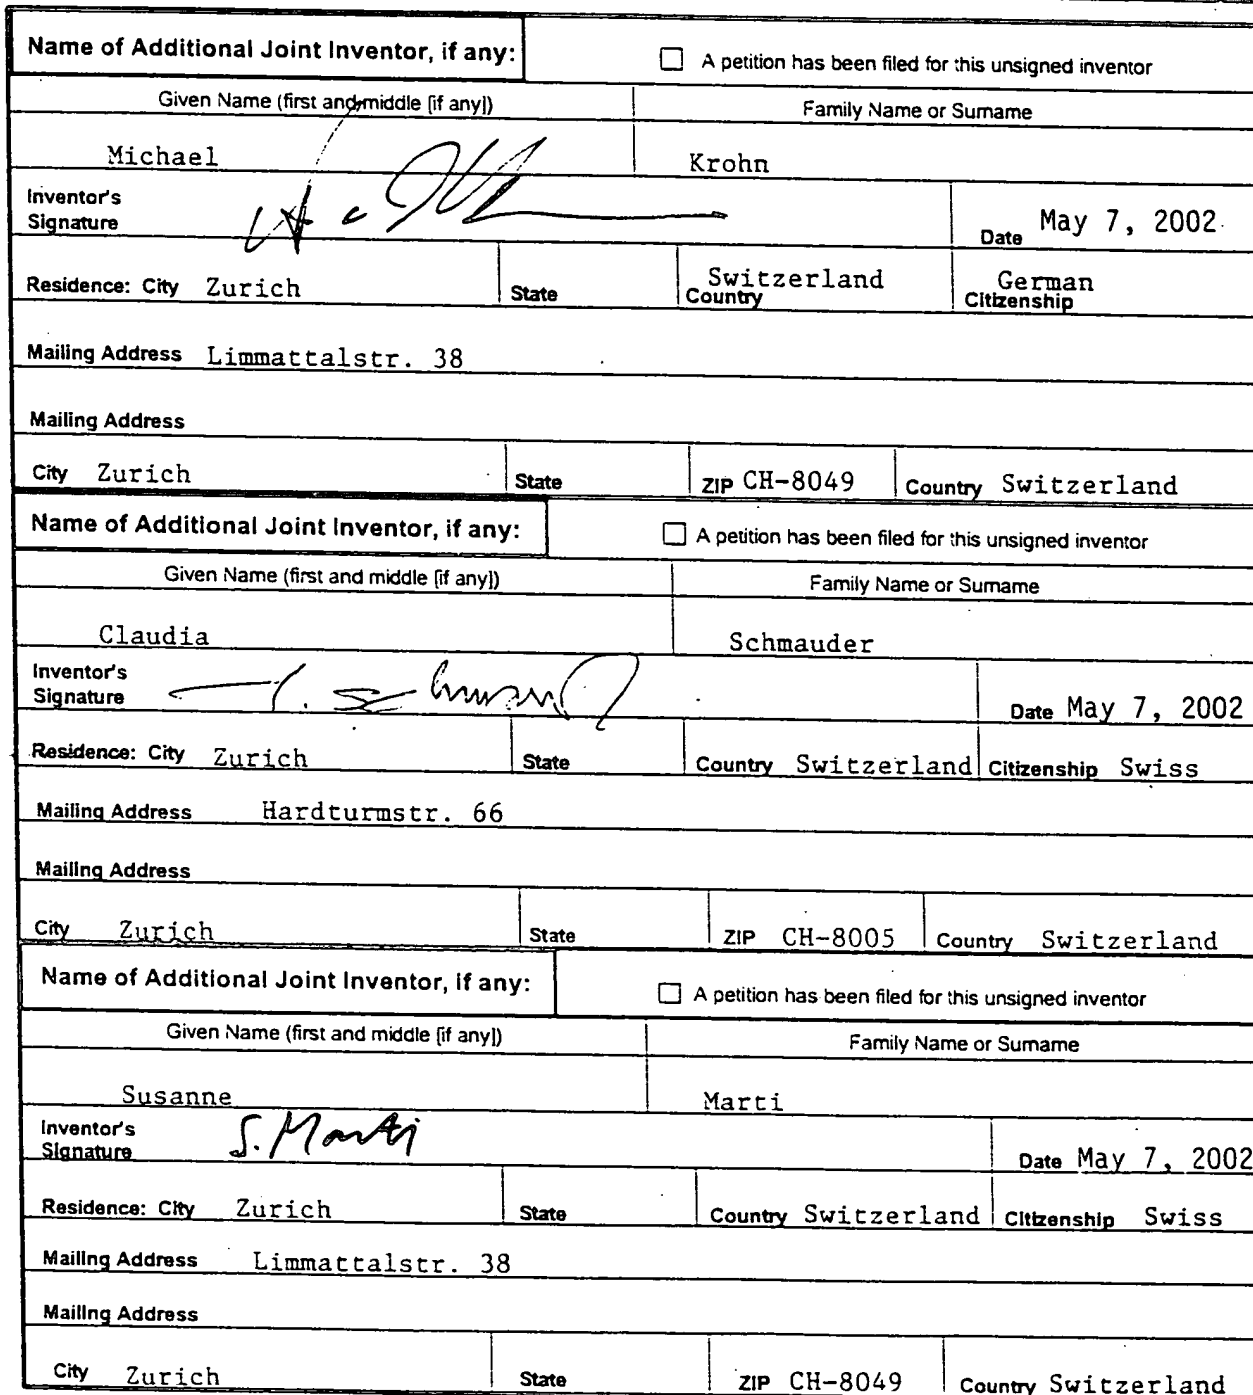 Name of Additional Joint Inventor, if any: ☐ A petition has been filed for this unsigned inventor
Given Name (first and middle [if any]) Family Name or Surname
Michael Krohn
Inventor's
Signature Date May 7, 2002
Residence: City Zurich State Switzerland Country German Citizenship
Mailing Address Limmattalstr. 38
Mailing Address
City Zurich State ZIP CH-8049 Country Switzerland
Name of Additional Joint Inventor, if any: ☐ A petition has been filed for this unsigned inventor
Given Name (first and middle [if any]) Family Name or Surname
Claudia Schmauder
Inventor's
Signature Date May 7, 2002
Residence: City Zurich State Country Switzerland Citizenship Swiss
Mailing Address Hardturmstr. 66
Mailing Address
City Zurich State ZIP CH-8005 Country Switzerland
Name of Additional Joint Inventor, if any: ☐ A petition has been filed for this unsigned inventor
Given Name (first and middle [if any]) Family Name or Surname
Susanne Marti
Inventor's
Signature S. Marti Date May 7, 2002
Residence: City Zurich State Country Switzerland Citizenship Swiss
Mailing Address Limmattalstr. 38
Mailing Address
City Zurich State ZIP CH-8049 Country Switzerland